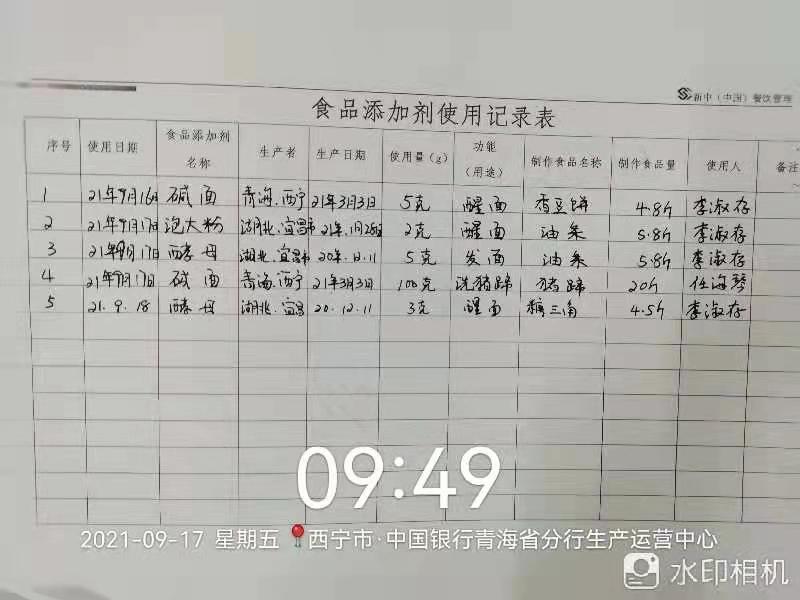 新中(中国)餐饮管理
食品添加剂使用记录表
序号 使用日期 食品添加剂名称 生产者 生产日期 使用量(g) 功能(用途) 制作食品名称 制作食品量 使用人 备注
1 21年9月16日 碱面 青海.西宁 21年3月3日 5克 醒面 香豆饼 4.8h 李淑存
2 21年9月17日 泡大粉 湖北.宜昌市 21年.1月28日 2克 醒面 油条 5.8h 李淑存
3 21年9月17日 酵母 湖北.宜昌市 20年.12.11 5克 发面 油条 5.8h 李淑存
4 21年9月17日 碱面 青海.西宁 21年3月3日 100克 洗猪蹄 猪蹄 20h 任海琴
5 21.9.18 酵母 湖北.宜昌 20.12.11 3克 醒面 糖三角 4.5h 李淑存
09:49
2021-09-17 星期五 西宁市·中国银行青海省分行生产运营中心
水印相机